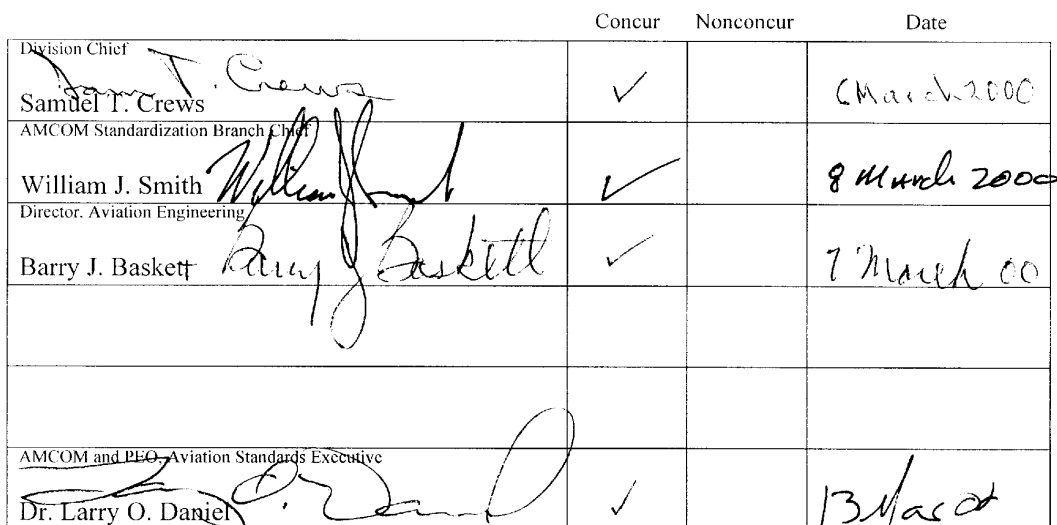 Concur Nonconcur Date
Division Chief
Sam T. Crews
Samuel T. Crews ✓ 6 March 2000
AMCOM Standardization Branch Chief
William J. Smith William J Smith ✓ 8 March 2000
Director, Aviation Engineering
Barry J. Baskett Barry J Baskett ✓ 7 March 00
AMCOM and PEO, Aviation Standards Executive
Dr. Larry O. Daniel ✓ 13 Mar 00